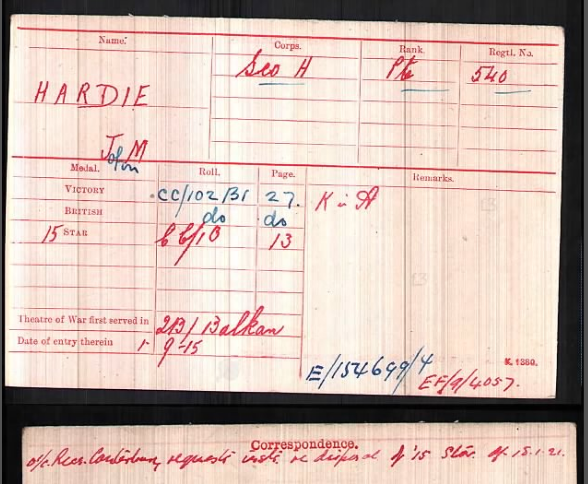 Name. Corps. Rank. Regtl. No.
HARDIE Sco H Pte 540
John M
Medal. Roll. Page. Remarks.
VICTORY CC/102/B1 27. K in A
BRITISH do do
15 STAR CC/1B 13
Theatre of War first served in 2B/Balkan
Date of entry therein 1-9-15
E/154699/4
EF/9/4057.
K. 1380.
Correspondence.
o/c. Recs. Canterbury, requests insts. re disposal of '15 Star. 15.1.21.